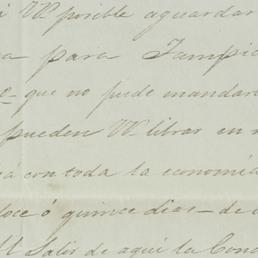 á VV. posible aguardar
para Tampic
que no puede mandar
pueden VV. librar en
á con toda la economía
doce ó quince dias – de
Salió de aquí la Con